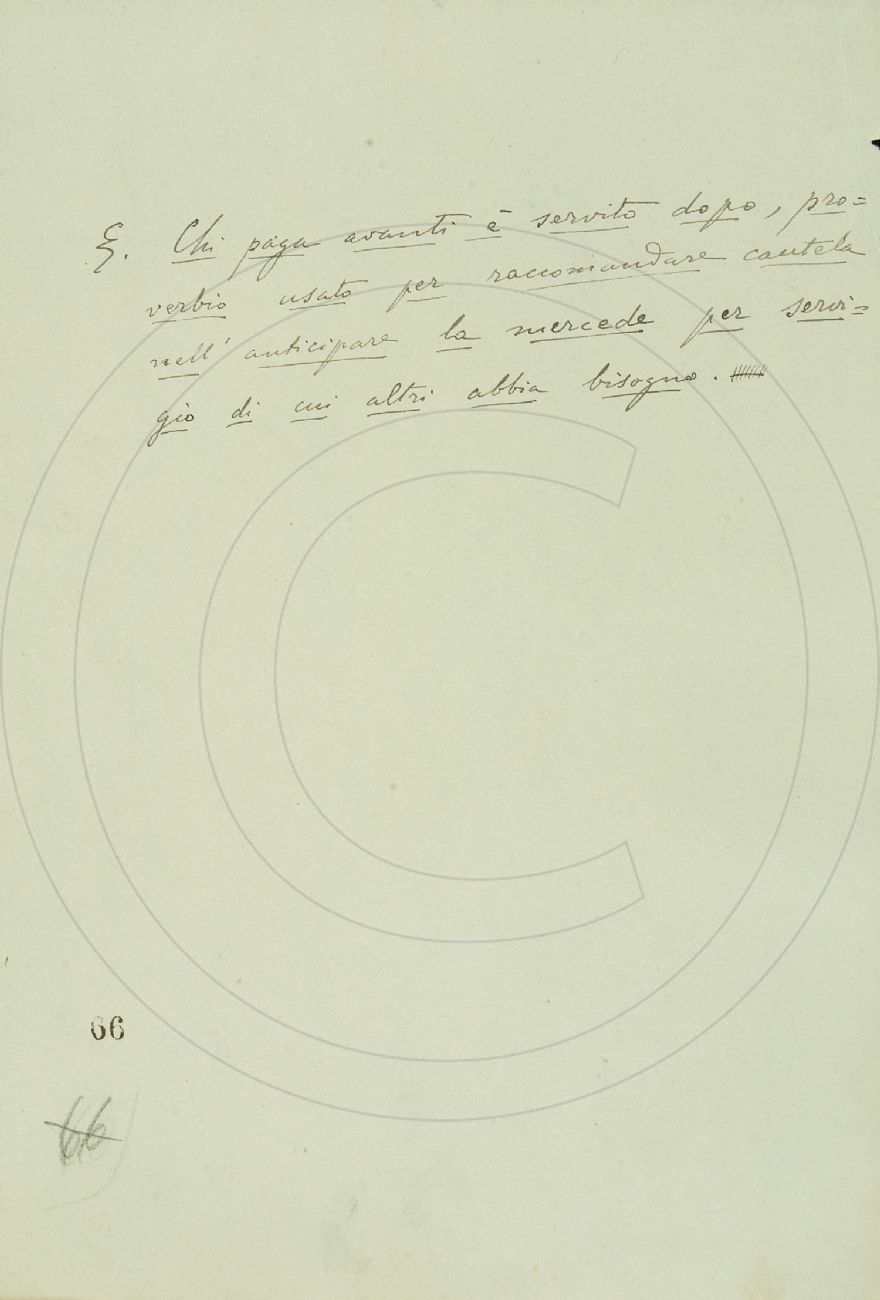 §. Chi paga avanti è servito dopo, pro=
verbio usato per raccomandare cautela
nell' anticipare la mercede per servi=
gio di cui altri abbia bisogno.
66
66